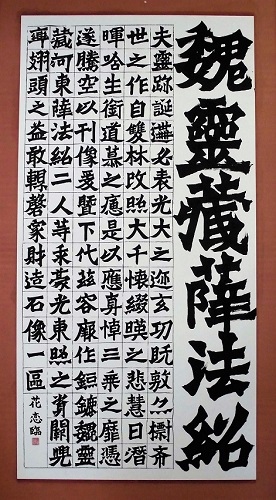 魏靈藏薛法紹
夫靈跡誕遘必表光大之迹玄功既敷亦標希
世之作自雙林改照大千懷綴暎之悲慧日潛
暉唅生銜道慕之痛是以應真悼三乘之靡憑
遂騰空以刊像爰暨下代茲容厥作鉅鏕魏靈
藏河東薛法紹二人等求豪光東照之資闕兜
率翅頭之益敢輒罄家財造石像一區
花恋臨